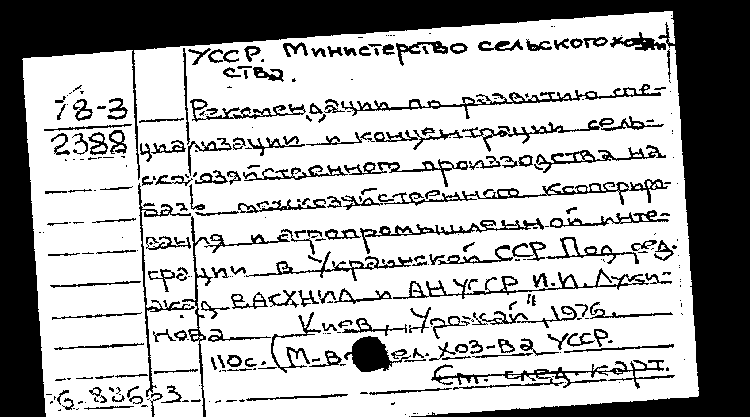 УССР. Министерство сельского хозяй-
ства.
78-3
2388
Рекомендации по развитию спе-
циализации и концентрации сель-
скохозяйственного производства на
базе межхозяйственного кооперир-
вания и агропромышленной инте-
грации в Украинской ССР. Под ред.
акад. ВАСХНИЛ и АН УССР И.И. Луки-
нова Киев, „Урожай", 1976.
110с. (М-во ел. хоз-ва УССР.
См. след. карт.
6-88663